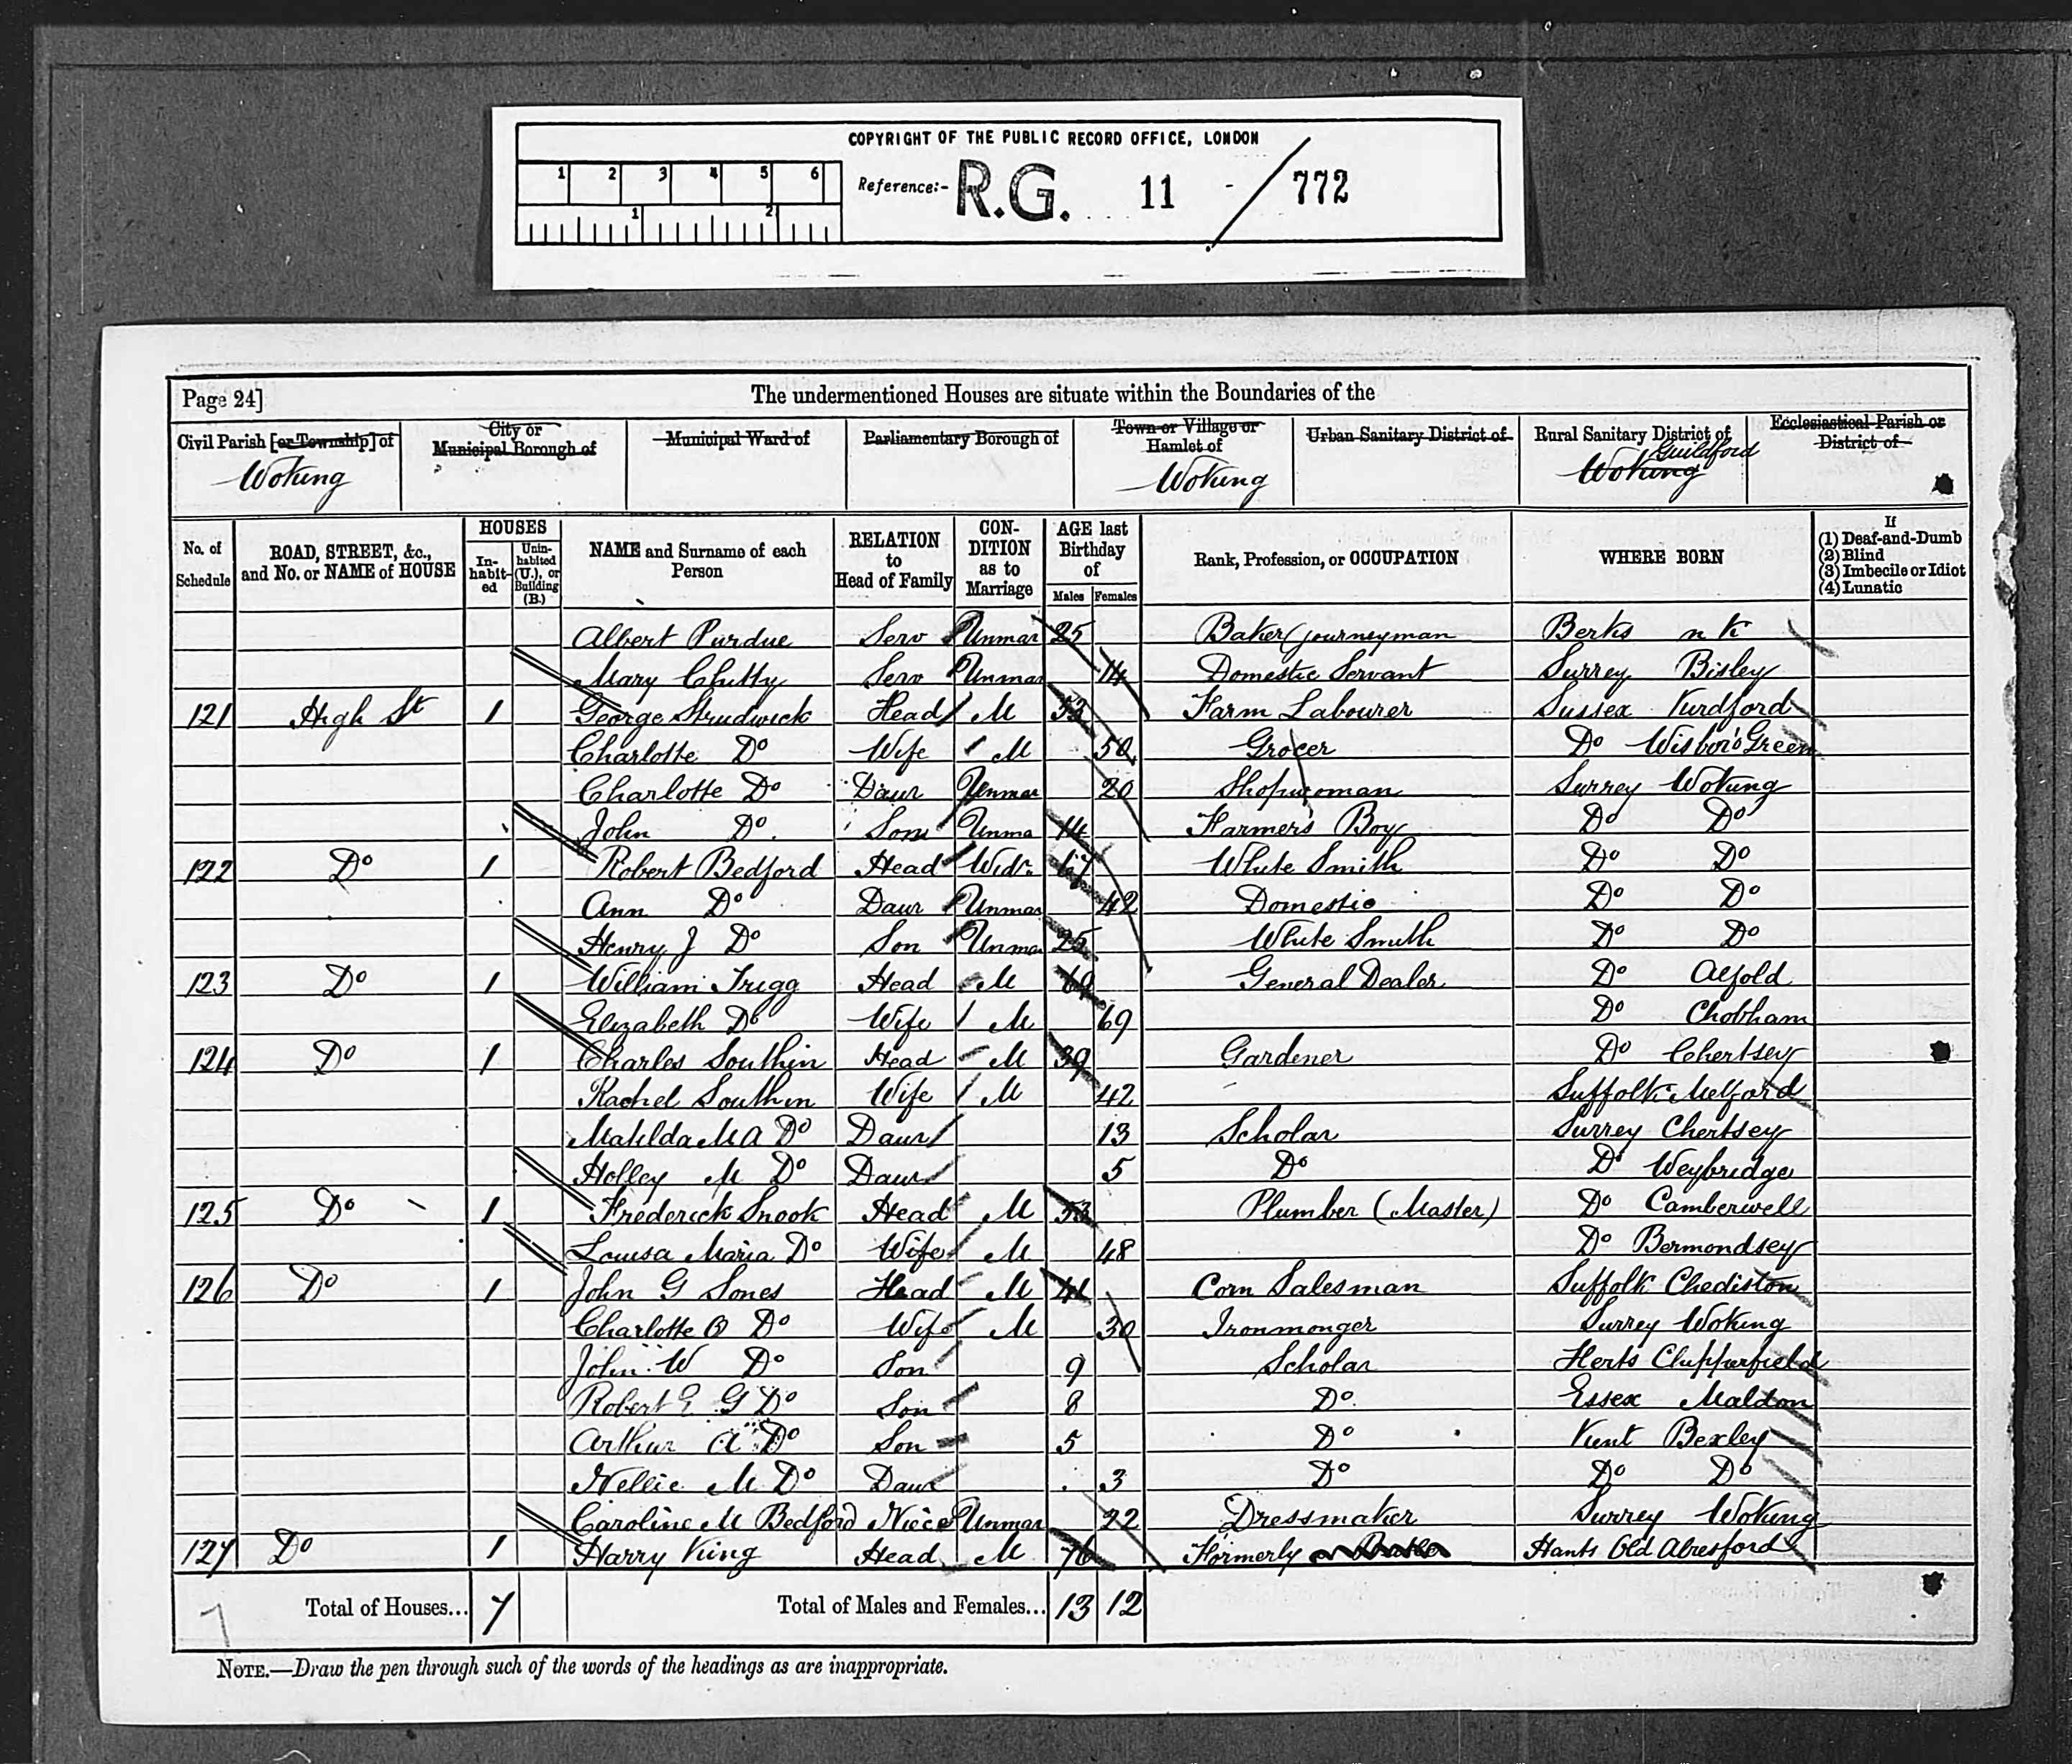 COPYRIGHT OF THE PUBLIC RECORD OFFICE, LONDON
1 2 3 4 5 6
Reference:- R.G. 11 - / 772
1 2
Page 24] The undermentioned Houses are situate within the Boundaries of the
Civil Parish [or Township] of City or Municipal Borough of Municipal Ward of Parliamentary Borough of Town or Village or Hamlet of Urban Sanitary District of Rural Sanitary District of Ecclesiastical Parish or District of
Woking Woking Woking Guildford
No. of Schedule ROAD, STREET, &c., and No. or NAME of HOUSE HOUSES In-habit-ed Unin-habited (U.), or Building (B.) NAME and Surname of each Person RELATION to Head of Family CON-DITION as to Marriage AGE last Birthday of Males Females Rank, Profession, or OCCUPATION WHERE BORN If (1) Deaf-and-Dumb (2) Blind (3) Imbecile or Idiot (4) Lunatic
Albert Purdue Serv Unmar 25 Baker (journeyman Berks n k
Mary Chitty Serv Unmar 14 Domestic Servant Surrey Bisley
121 High St 1 George Strudwick Head M 53 Farm Labourer Sussex Kurdford
Charlotte Do Wife M 50 Grocer Do Wisboro Green
Charlotte Do Daur Unmar 20 Shopwoman Surrey Woking
John Do Son Unma 14 Farmer's Boy Do Do
122 Do 1 Robert Bedford Head Widr. 67 White Smith Do Do
Ann Do Daur Unmar 42 Domestic Do Do
Henry J Do Son Unmar 25 White Smith Do Do
123 Do 1 William Trigg Head M 69 General Dealer Do Alfold
Elizabeth Do Wife M 69 Do Chobham
124 Do 1 Charles Southin Head M 39 Gardener Do Chertsey
Rachel Southin Wife M 42 Suffolk Melford
Matilda M A Do Daur 13 Scholar Surrey Chertsey
Holley M Do Daur 5 Do Do Weybridge
125 Do 1 Frederick Snook Head M 53 Plumber (Master) Do Camberwell
Louisa Maria Do Wife M 48 Do Bermondsey
126 Do 1 John G Sones Head M 41 Corn Salesman Suffolk Chediston
Charlotte Do Wife M 30 Ironmonger Surrey Woking
John W Do Son 9 Scholar Herts Chipperfield
Robert E G Do Son 8 Do Essex Maldon
Arthur A Do Son 5 Do Kent Bexley
Nellie M Do Daur 3 Do Do Do
Caroline M Bedford Niece Unmar 22 Dressmaker Surrey Woking
127 Do 1 Harry King Head M 76 Formerly Hants Old Alresford
7 Total of Houses... 7 Total of Males and Females... 13 12
NOTE.—Draw the pen through such of the words of the headings as are inappropriate.